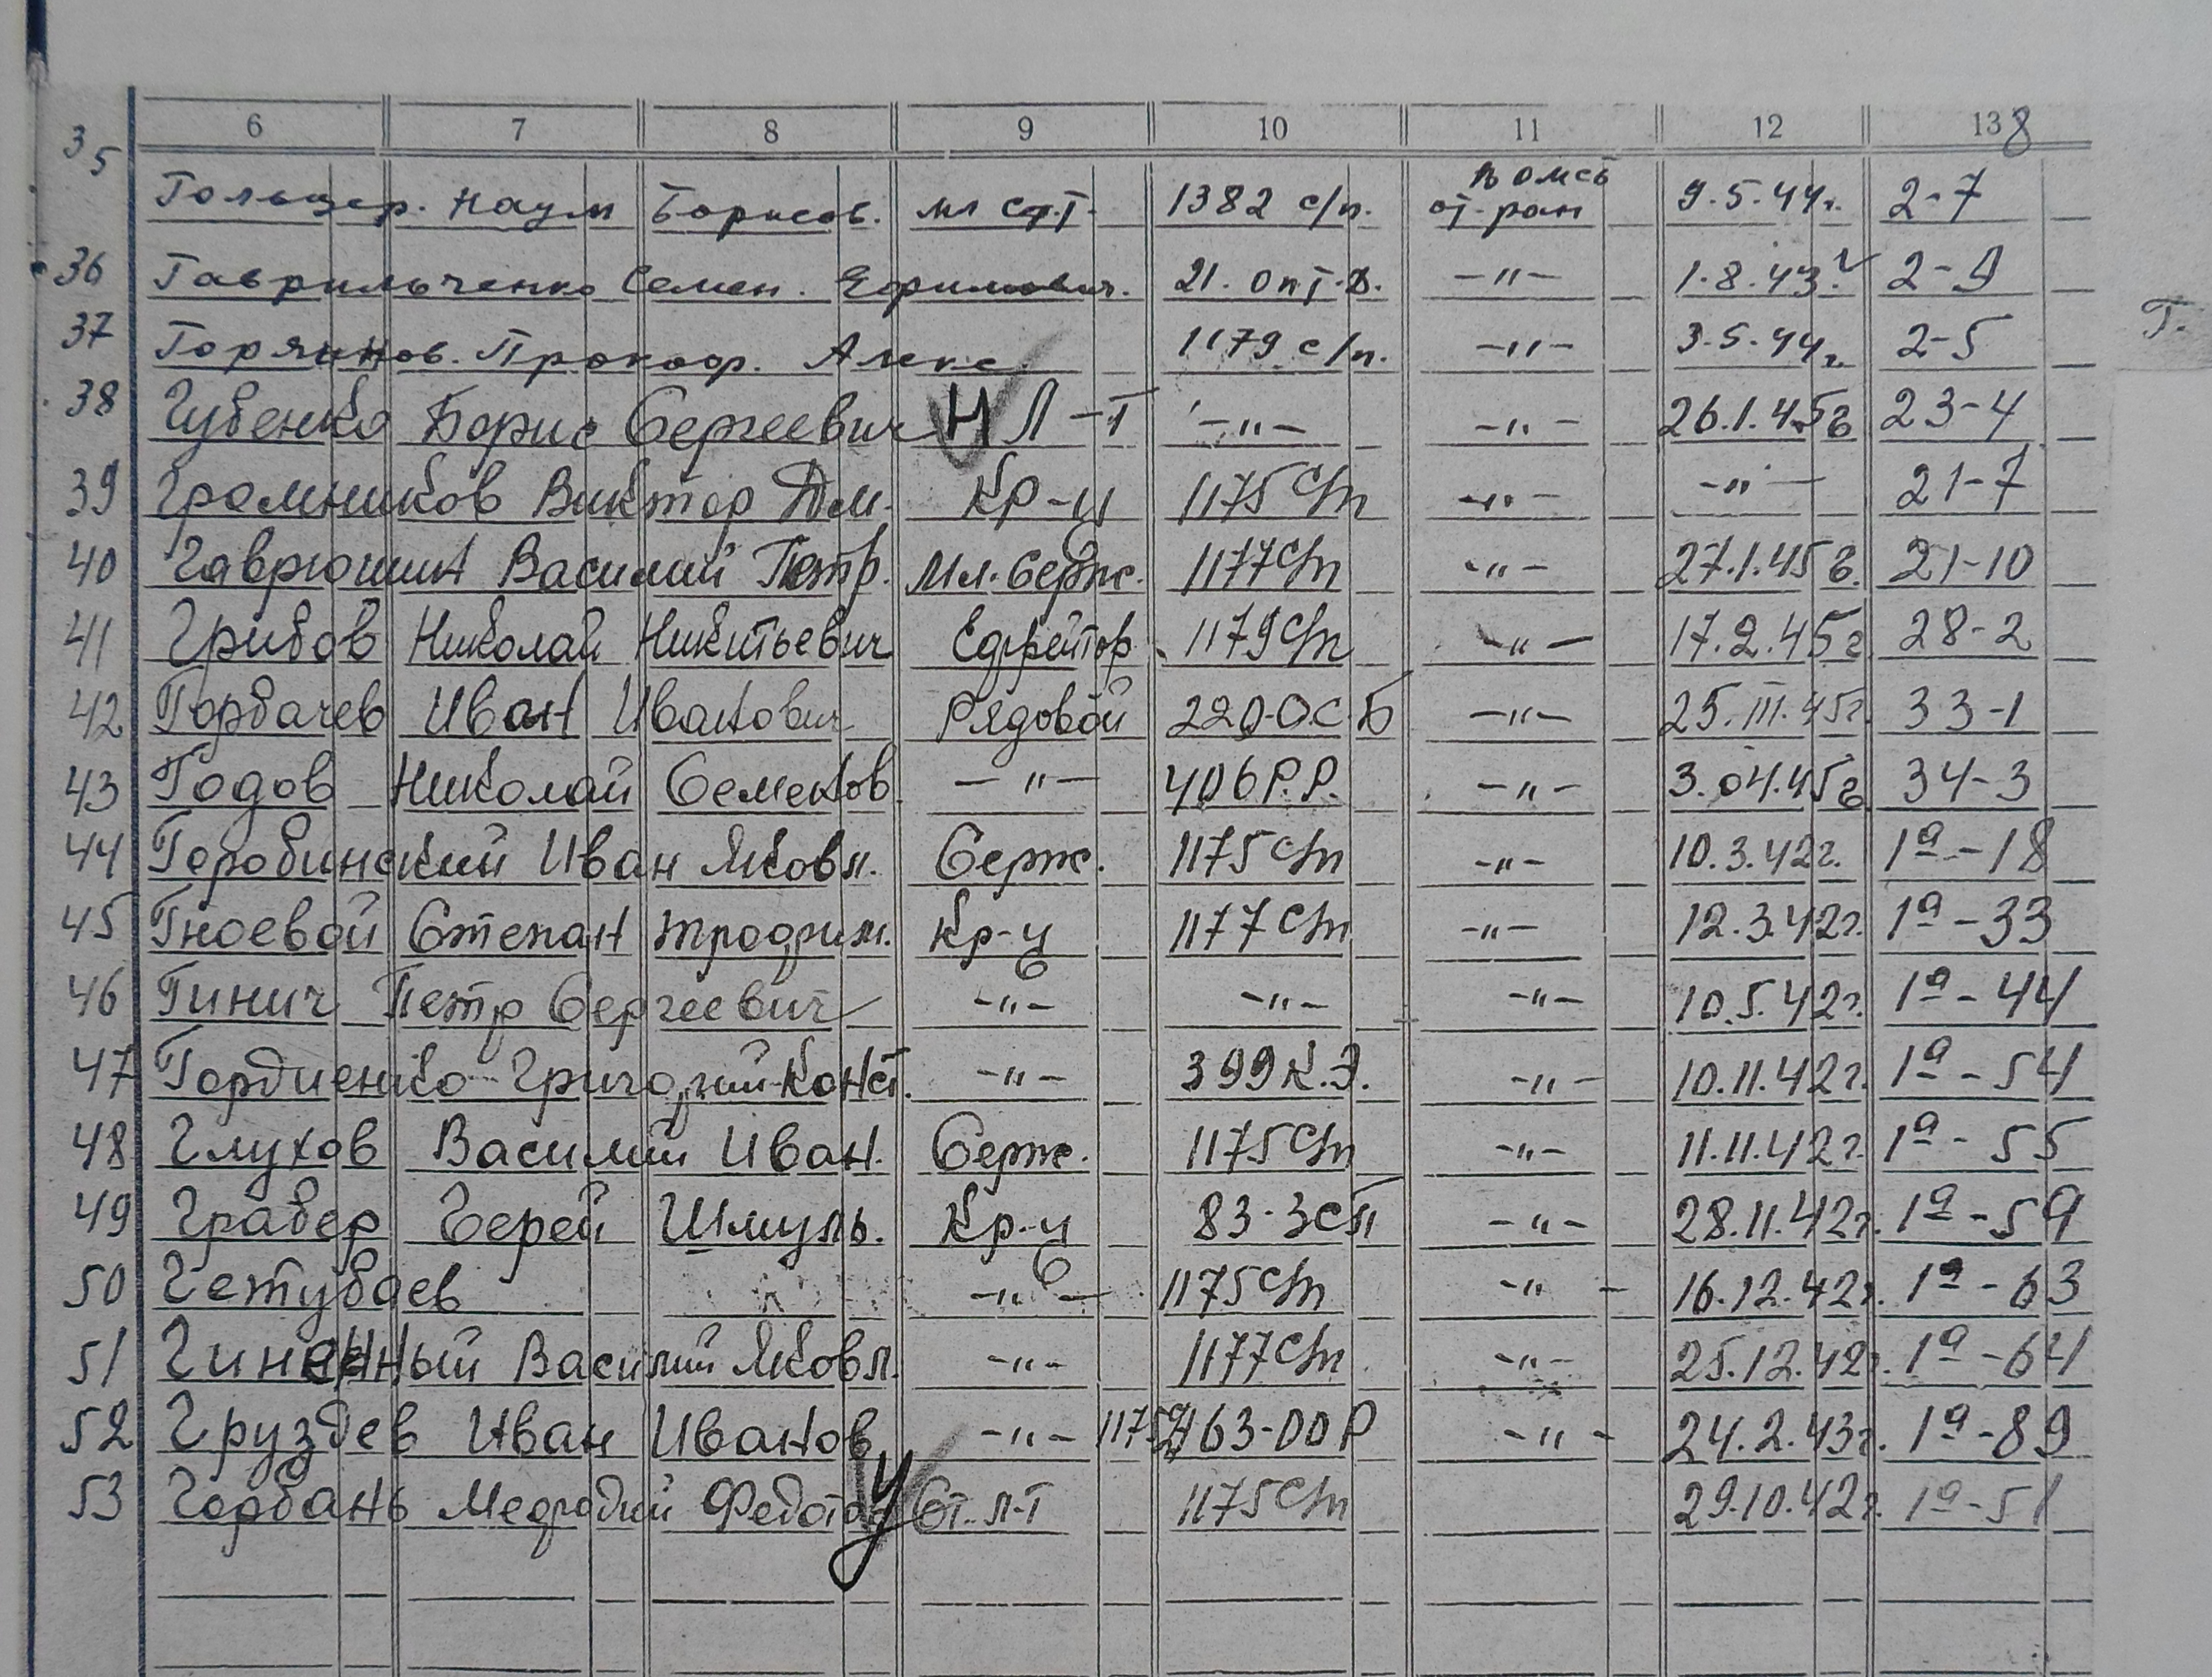 6 7 8 9 10 11 12 13 8
35 Гольцер. Наум Борисов. мл с-т. 1382 с/п. в омсб от ран 9.5.44г. 2-7
36 Гаврильченко Семен. Ефимович. 21. Опт.Д. -"- 1.8.43г 2-9
37 Горяинов. Прокоф. Алекс. 1179 с/п. -"- 3.5.44г. 2-5
38 Губенко Борис Сергеевич Н Л-Т -"- -"- 26.1.45г 23-4
39 Громников Виктор Дм. Кр-ц 1175 Сп -"- -"- 21-7
40 Гаврюшин Василий Петр. Мл. Серж. 1177 Сп -"- 27.1.45г. 21-10
41 Грибов Николай Никитьевич Ефрейтор 1179 Сп -"- 17.2.45г 28-2
42 Горбачев Иван Иванович Рядовой 220.О.С.Б -"- 25.III.45г. 33-1
43 Годов Николай Семенов. -"- 406 Р.Р. -"- 3.04.45г 34-3
44 Горобинский Иван Яковл. Серж. 1175 Сп -"- 10.3.42г. 1а-18
45 Гноевой Степан трофим. Кр-ц 1177 Сп -"- 12.3.42г. 1а-33
46 Гинич Петр Сергеевич -"- -"- -"- 10.5.42г. 1а-44
47 Гордиенко Григорий Конст. -"- 399 К.Э. -"- 10.11.42г. 1а-54
48 Глухов Василий Иван. Серж. 1175 Сп -"- 11.11.42г. 1а-55
49 Грабер Герей Шмуль. Кр-ц 83-ЗСП -"- 28.11.42г. 1а-59
50 Гетубаев -"- 1175 Сп -"- 16.12.42г. 1а-63
51 Гиненный Василий Яковл. -"- 1177 Сп -"- 25.12.42г. 1а-64
52 Груздев Иван Иванов -"- 1175 463-ООР -"- 24.2.43г. 1а-89
53 Горбань Мефодий Федотов У Ст. Л-Т 1175 Сп 29.10.42г. 1а-51
Г.